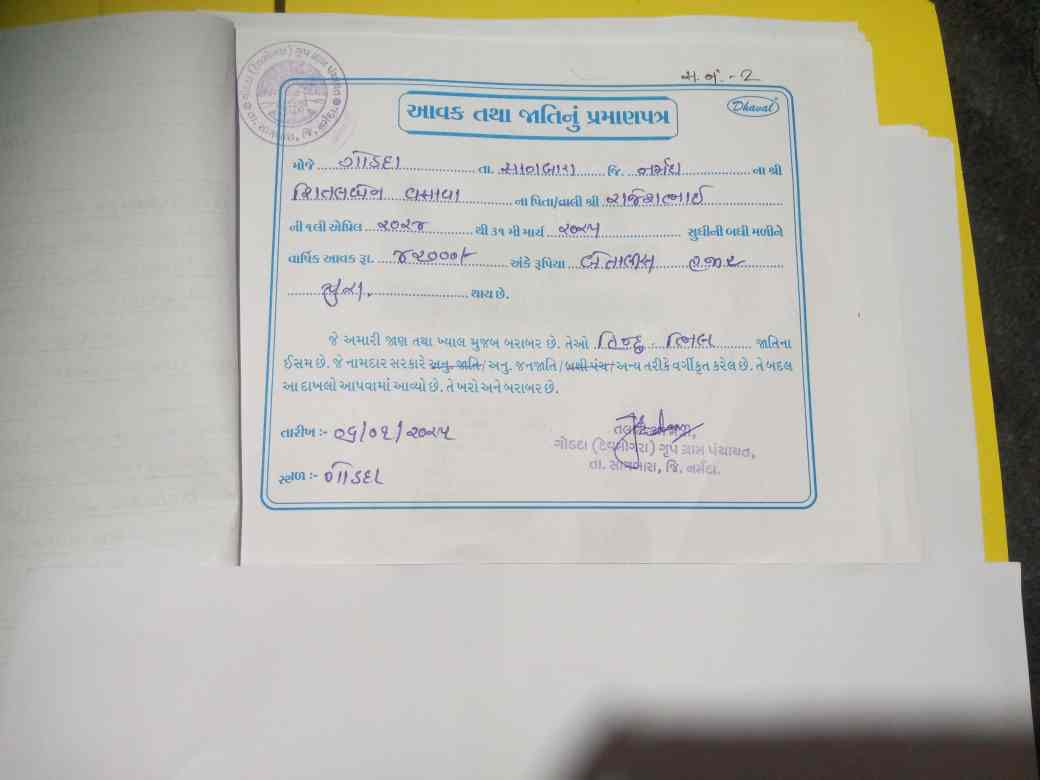 અ.નં.-2
Dhaval
આવક તથા જાતિનું પ્રમાણપત્ર
મોજે ગોડદા તા. સાગબારા જિ. નર્મદા ના શ્રી
શિતલબેન વસાવા ના પિતા/વાલી શ્રી રાજેશભાઈ
ની ૧લી એપ્રિલ ૨૦૨૪ થી ૩૧ મી માર્ચ ૨૦૨૫ સુધીની બધી મળીને
વાર્ષિક આવક રૂા. ૪૨૦૦૦/- અંકે રૂપિયા બેતાલીસ હજાર
પુરા. થાય છે.
જે અમારી જાણ તથા ખ્યાલ મુજબ બરાબર છે. તેઓ હિન્દુ ભિલ જાતિના
ઈસમ છે. જે નામદાર સરકારે અનુ. જાતિ/અનુ. જનજાતિ/બક્ષીપંચ/અન્ય તરીકે વર્ગીકૃત કરેલ છે. તે બદલ
આ દાખલો આપવામાં આવ્યો છે. તે ખરો અને બરાબર છે.
તારીખ :- ૦૬/૦૧/૨૦૨૫
ગોડદા (દેવમોગરા) ગૃપ ગ્રામ પંચાયત,
તા. સાગબારા, જિ. નર્મદા.
સ્થળ :- ગોડદા